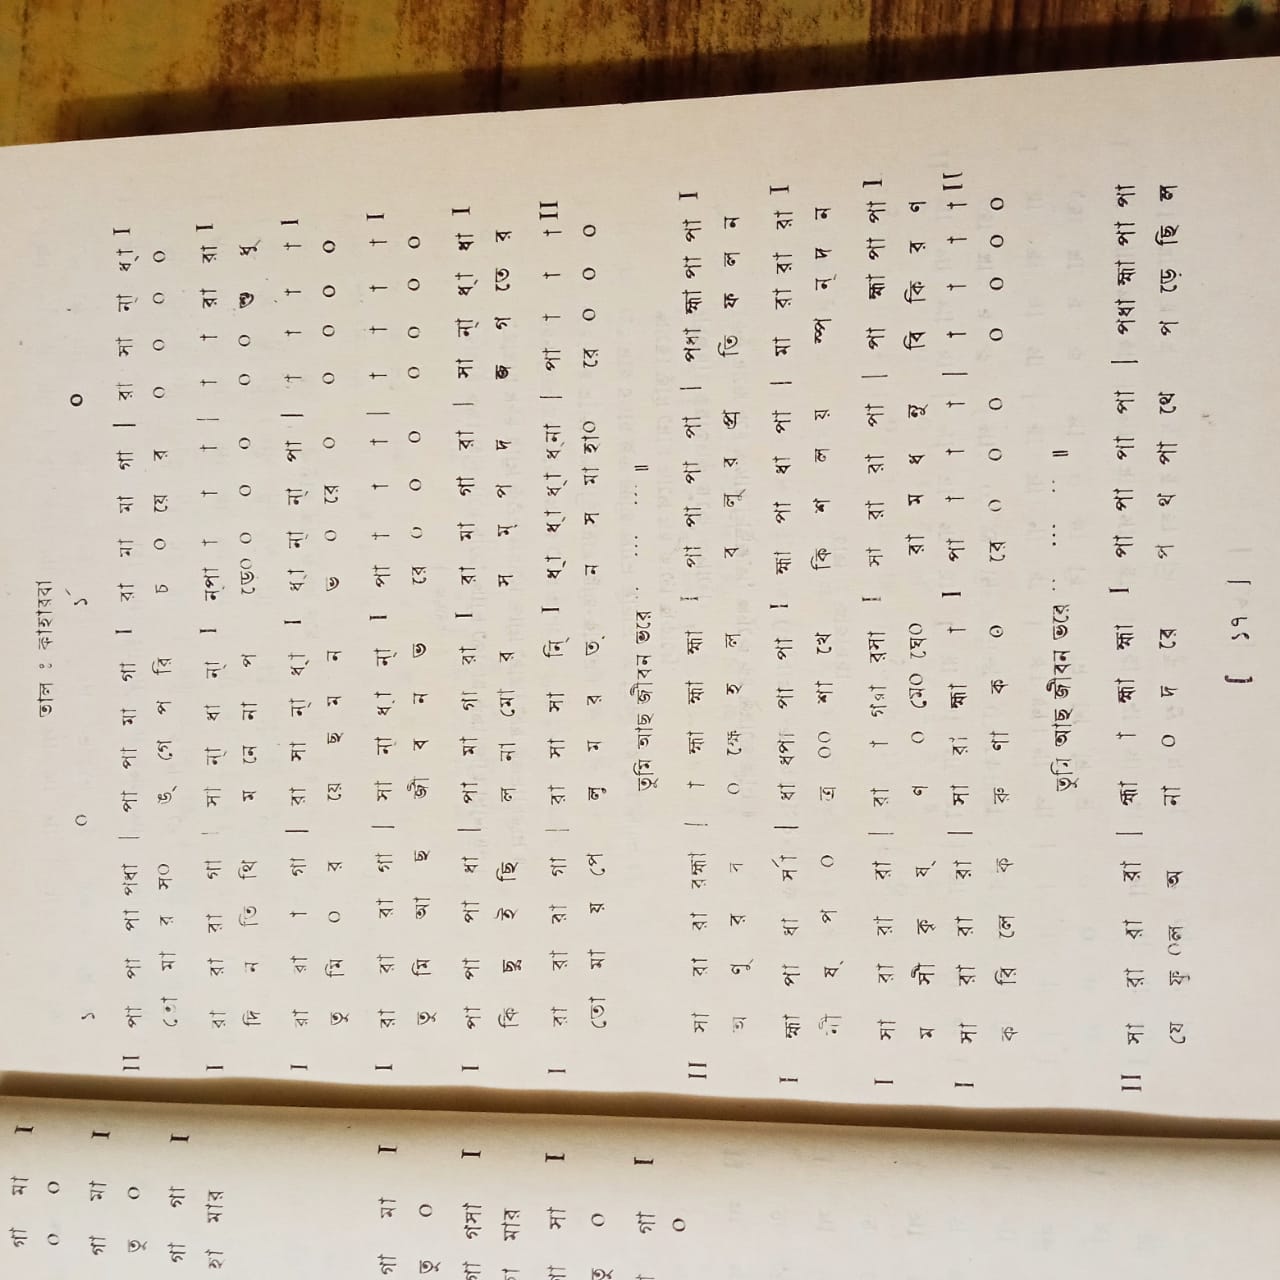 তাল : কাহারবা
১ ০ ১´ ০
II পা পা পা পধা | পা পা মা গা I রা মা মা গা | রা সা ন্‌া ধ্‌া I
তো মা র স০ ঙ্ গে প রি চ ০ য়ে র ০ ০ ০ ০
I রা রা রা গা | সা ন্‌া ধা ন্‌া I ন্‌পা া া া | া া রা রা I
দি ন তি থি ম নে না প ড়ে০ ০ ০ ০ ০ ০ শু ধু
I রা রা া গা | রা সা ন্‌া ধ্‌া I ধ্‌া ন্‌া ন্‌া পা | া া া া I
তু মি ০ র য়ে ছ ম ন ভ ০ রে ০ ০ ০ ০ ০
I রা রা রা গা | সা ন্‌া ধ্‌া ন্‌া I পা া া া | া া া া I
তু মি আ ছ জী ব ন ভ রে ০ ০ ০ ০ ০ ০ ০
I পা পা পা ধা | পা মা গা রা I রা মা গা রা | সা ন্‌া ধ্‌া ধা I
কি ছু ই ছি ল না মো র স ম্ প দ জ গ তে র
I রা রা রা গা | রা সা সা নি্ I ধ্‌া ধ্‌া ধ্‌া ধ্‌না | পা া া া II
তো মা য় পে লু ম র ত্ ন স মা হা০ রে ০ ০ ০
তুমি আছ জীবন ভরে ... ... ... ॥
II সা রা রা রহ্মা | া হ্মা হ্মা হ্মা I পা পা পা পা | পধা হ্মা পা পা I
অ ণু র ন ০ ক্ষে হ ল ব লু র প্র তি ফ ল ন
I হ্মা পা ধা র্সা | ধা ধপা পা পা I হ্মা পা ধা পা | মা রা রা রা I
নী ষ্ প ০ ত্র ০০ শা খে কি শ ল য় স্প ন্ দ ন
I সা রা রা রা | রা া গরা রসা I সা রা রা পা | পা হ্মা পা পা I
ম সী কৃ ষ্ ণ ০ মে০ ঘে০ রা ম ধ নু বি কি র ণ
I সা রা রা রা | সা রা হ্মা া I পা া া া | া া া া II
ক রি লে ক রু ণা ক ০ রে ০ ০ ০ ০ ০ ০ ০
তুমি আছ জীবন ভরে ... ... ... ॥
II সা রা রা রা | হ্মা া হ্মা হ্মা I পা পা পা পা | পধা হ্মা পা পা
যে ফু লে অ না ০ দ রে প থ পা খে প ড়ে ছি ল
গা মা I
০ ০
গা মা I
তু ০
গা গা I
হা মার
গা মা I
তু ০
গা গসা I
মার
সা I
তু ০
গা I
০